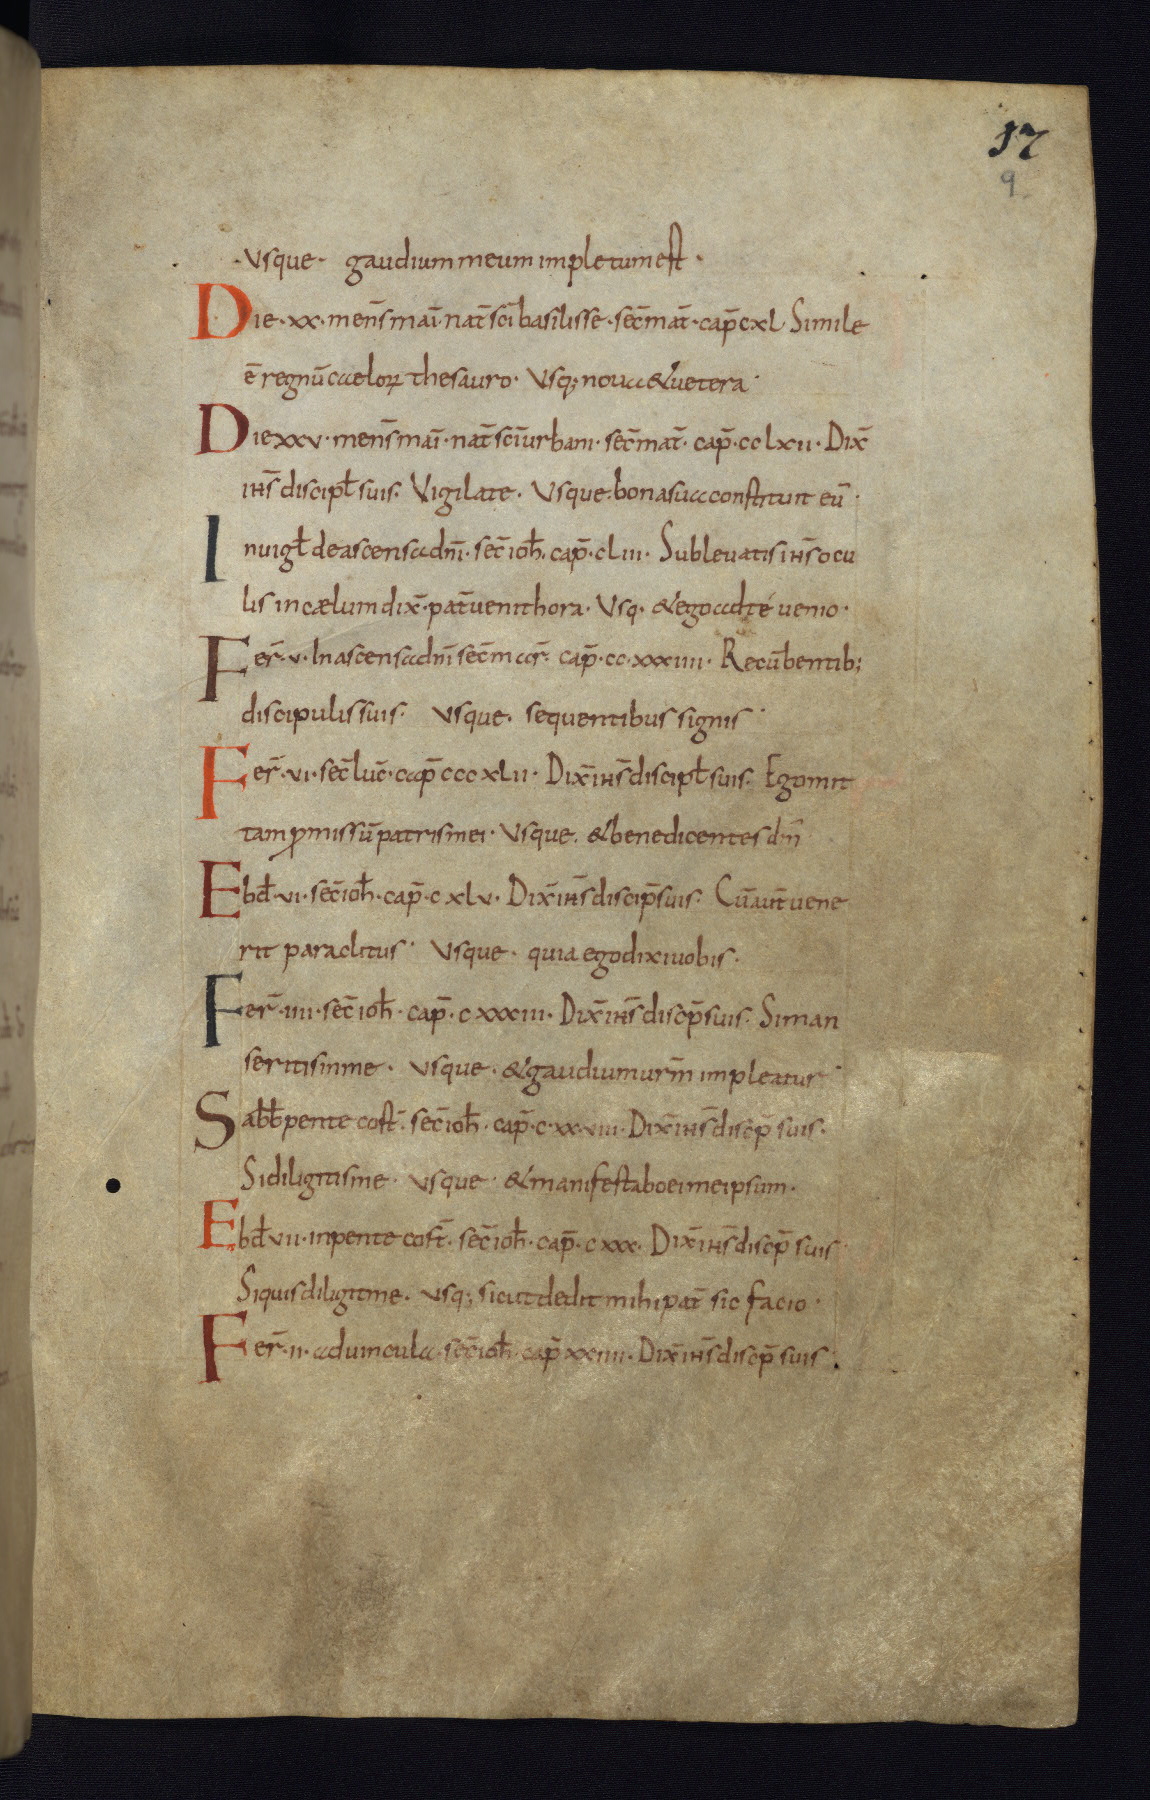 17
9
·Vsque· gaudium meum impletum est·
Die·xx·mens̄ maī·nat̄ scī basilisse·sec̄ mat̄·cap̄ cxl Simile
ē regnū caeloꝝ thesauro· Vsq; noua & uetera·
Die xxv·mens̄ maī·nat̄ scī urbani·sec̄ mat̄·cap̄·cclxii·Dix̄
ih̄s discipl̄ suis· Vigilate· Vsque·bona sua constituit eū·
In uigl̄ de ascensa dn̄i·sec̄ ioh̄·cap̄·cliii· Subleuatis ih̄s ocu
lis in cælum dix̄·pat̄ uenit hora· Vsq· & ego ad te uenio·
Fer̄·v·In ascensa dn̄i sec̄ mar̄· cap̄·cc·xxxiiii· Recūbentib;
discipulis suis· Vsque· sequentibus signis·
Fer̄·vi·sec̄ luc̄·cap̄ cccxlii· Dix̄ ih̄s discipl̄ suis· Ego mit
tam ꝓmissū patris mei· Vsque· & benedicentes dn̄
Ebd̄·vi·sec̄ ioh̄·cap̄·cxlv·Dix̄ ih̄s discip̄ suis· Cū aut̄ uene
rit paraclitus· Vsque· quia ego dixi uobis·
Fer̄·iiii·sec̄ ioh̄·cap̄·cxxxiii·Dix̄ ih̄s discp̄ suis· Si man
seritis in me· Vsque·& gaudium urm̄ impleatur·
Sabb̄ pente cost̄·sec̄ ioh̄·cap̄·c·xx·viii·Dix̄ ih̄s discp̄ suis·
Si diligitis me· Vsque· & manifestabo ei me ipsum·
Ebd̄ vii·in pente cost̄·sec̄ ioh̄·cap̄·cxxx·Dix̄ ih̄s discp̄ suis·
Si quis diligit me· Vsq; sicut dedit mihi pat̄ sic facio·
Fer̄·ii·ad uincula·sec̄ ioh̄·cap̄ xxiiii·Dix̄ ih̄s discp̄ suis·